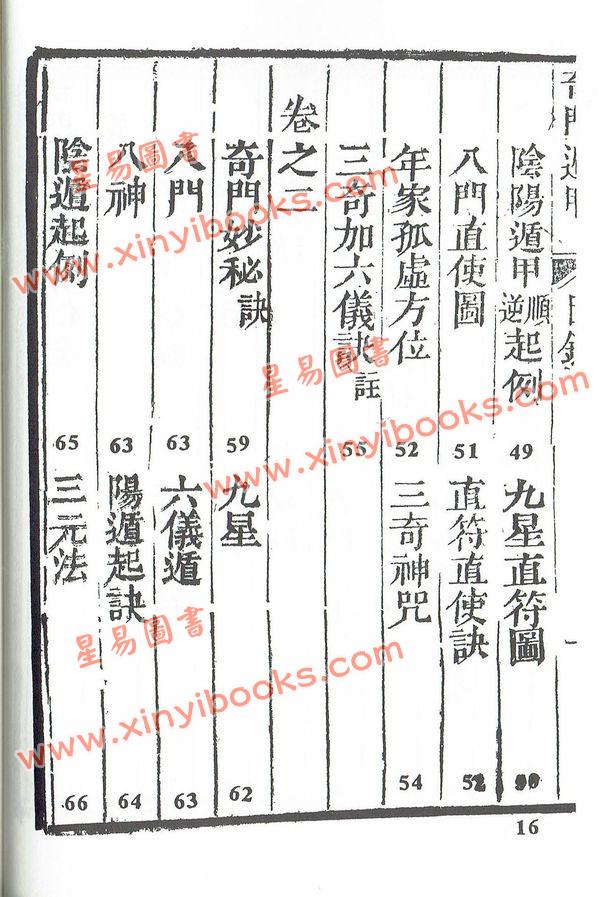 奇門遁甲 目錄 一
陰陽遁甲順逆起例 49 九星直符圖 50
八門直使圖 51 直符直使訣 52
年家孤虛方位 52 三奇神咒 54
三奇加六儀訣註 55
卷之三
奇門妙秘訣 59 九星 62
八門 63 六儀遁 63
八神 63 陽遁起訣 64
陰遁起例 65 三元法 66
16
星易圖書
www.xinyibooks.com
星易圖書
www.xinyibooks.com
星易圖書
www.xinyibooks.com